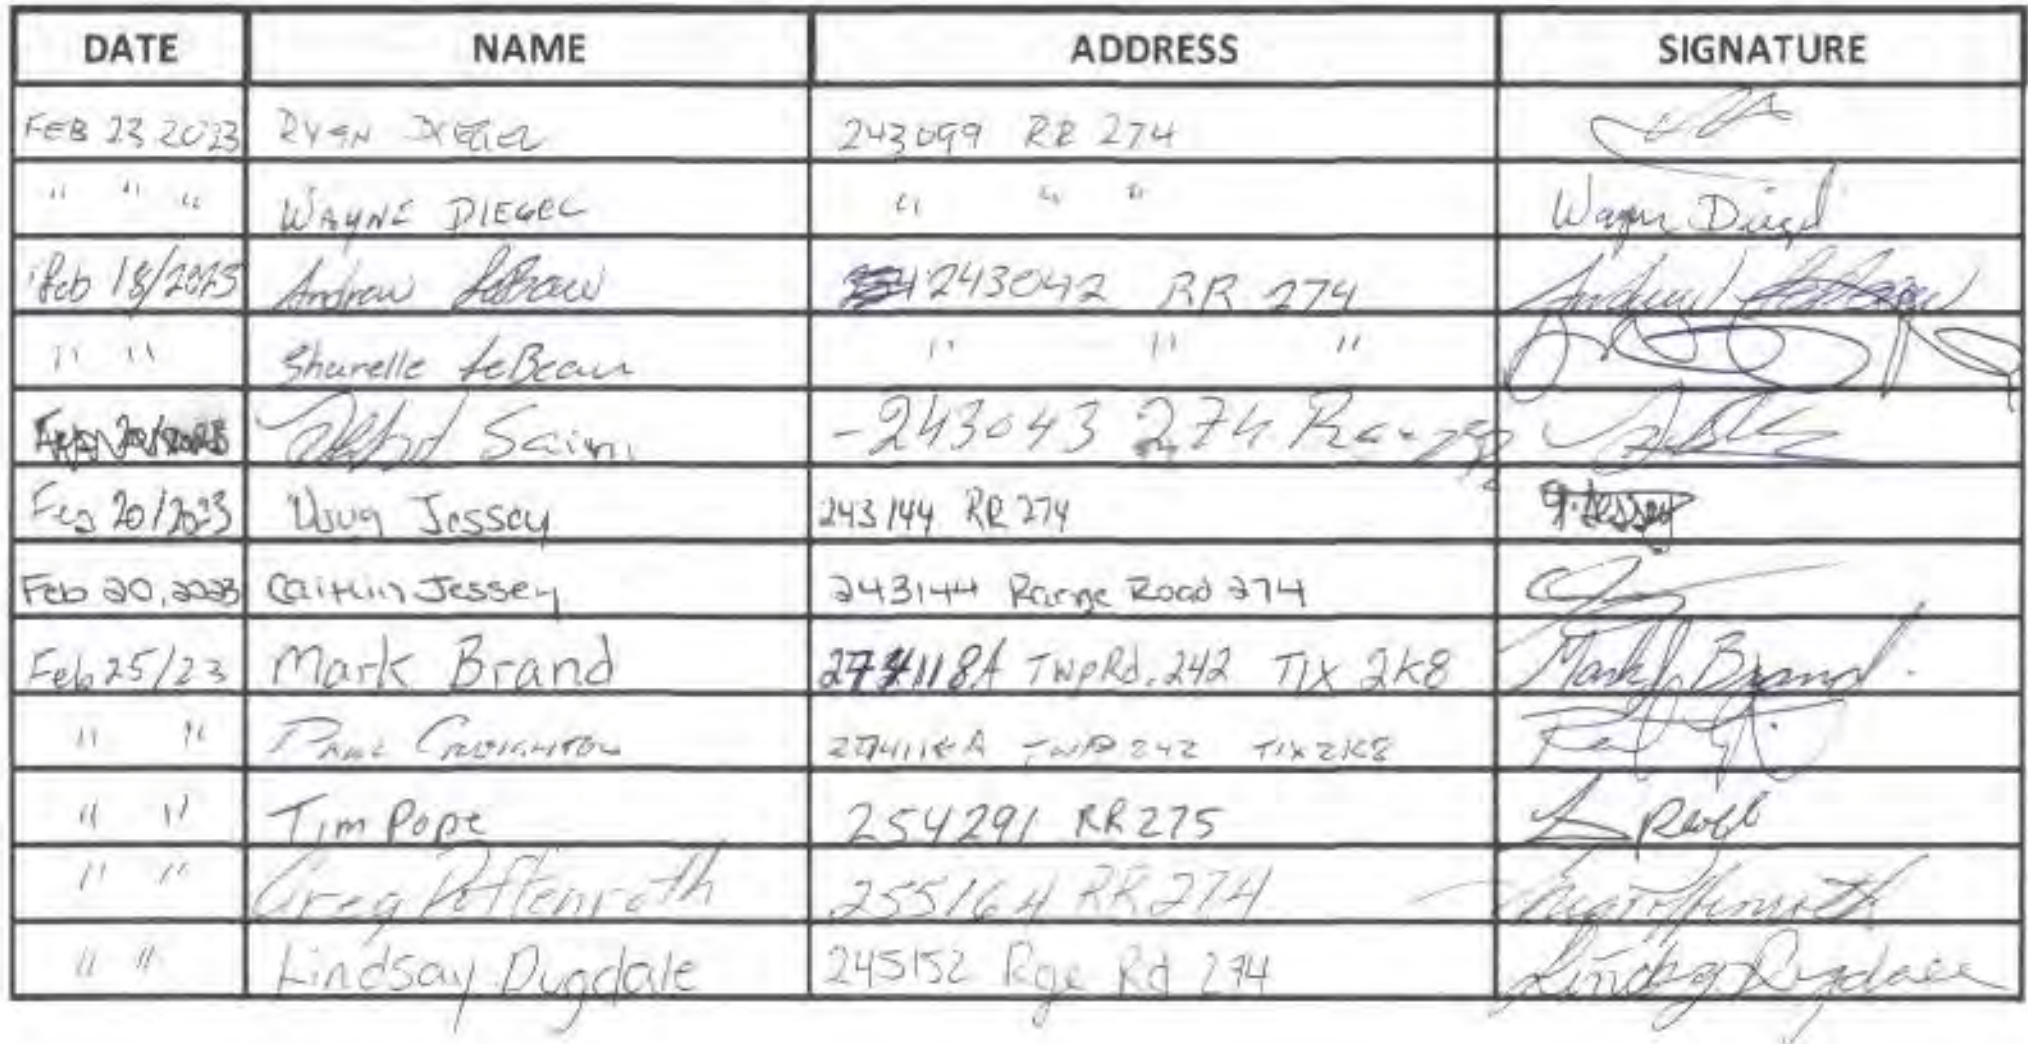 DATE NAME ADDRESS SIGNATURE
FEB 23 2023 RYAN DIEGEL 243099 RR 274
" " " WAYNE DIEGEL " " " Wayne Diegel
Feb 18/2023 Andrew LeBeau 243042 RR 274 Andrew LeBeau
" " Sharelle LeBeau " " "
Saini - 243043 274 Range
Feb 20/2023 Doug Jessey 243144 RR 274 Jessey
Feb 20, 2023 Caitlin Jessey 243144 Range Road 274
Feb 25/23 Mark Brand 274118A Twp Rd. 242 T1X 2K8 Mark Brand
" " PAUL CREIGHTON 274118A TWP 242 T1X 2K8
" " Tim Pope 254291 RR 275
" " Greg Pottenroth 255164 RR 274
" " Lindsay Dugdale 245152 Rge Rd 274 Lindsay Dugdale